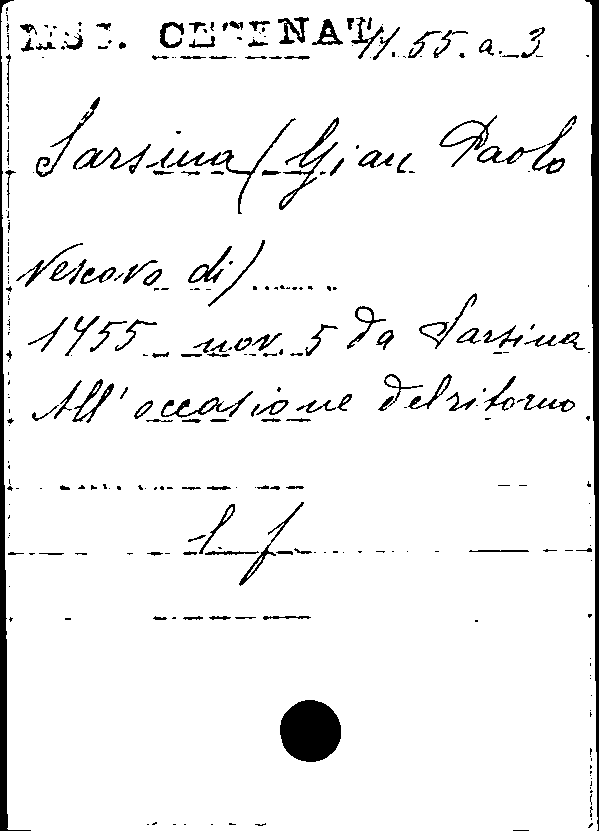 MSS. CESENAT 11.55.a.3
Sarsina (Gian Paolo
Vescovo di)......
1455 nov. 5 da Sarsina
All'occasione del ritorno
l f